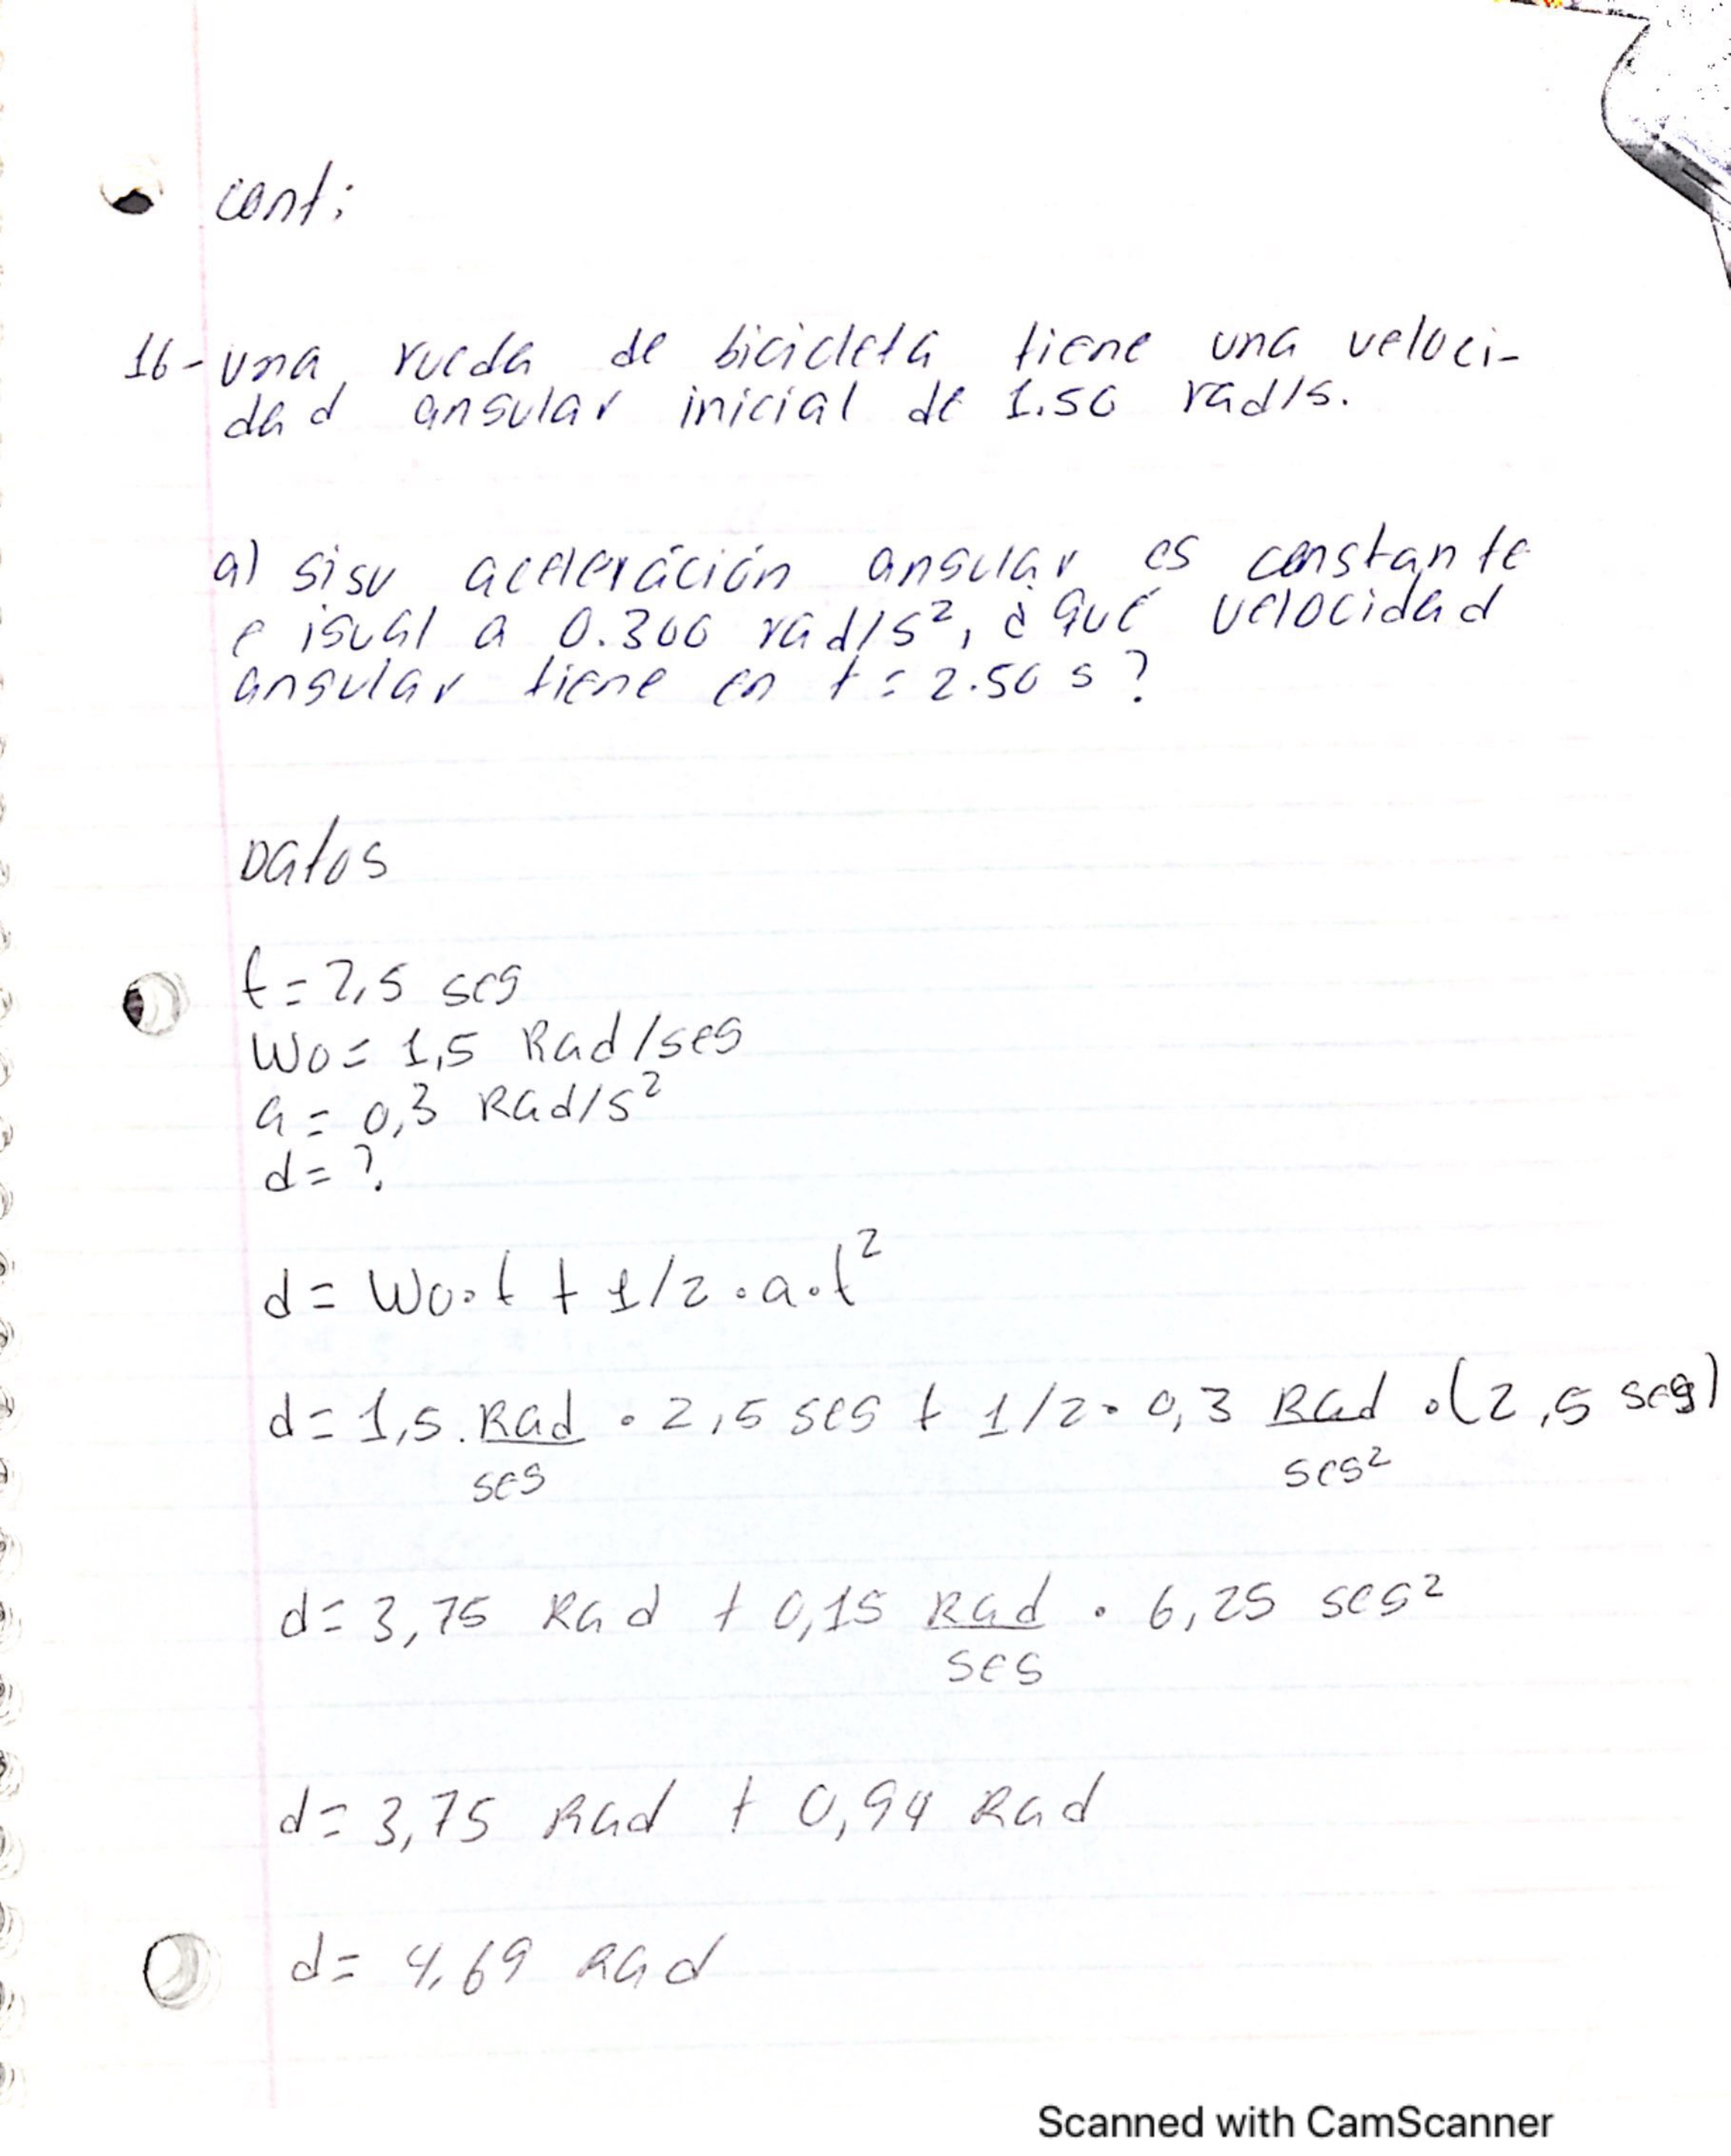 cont:
16- una rueda de bicicleta tiene una veloci-
dad angular inicial de 1.50 rad/s.
a) si su aceleración angular es constante
e igual a 0.300 rad/s², ¿ que velocidad
angular tiene en t = 2.50 s ?
Datos
t = 2,5 seg
Wo = 1,5 Rad/seg
a = 0,3 Rad/s²
d = ?
d = Wo • t + 1/2 • a • t²
d = 1,5 . Rad/seg • 2,5 seg + 1/2 • 0,3 Rad/seg² • (2,5 seg)
d = 3,75 Rad + 0,15 Rad/seg • 6,25 seg²
d = 3,75 Rad + 0,94 Rad
d = 4,69 Rad
Scanned with CamScanner